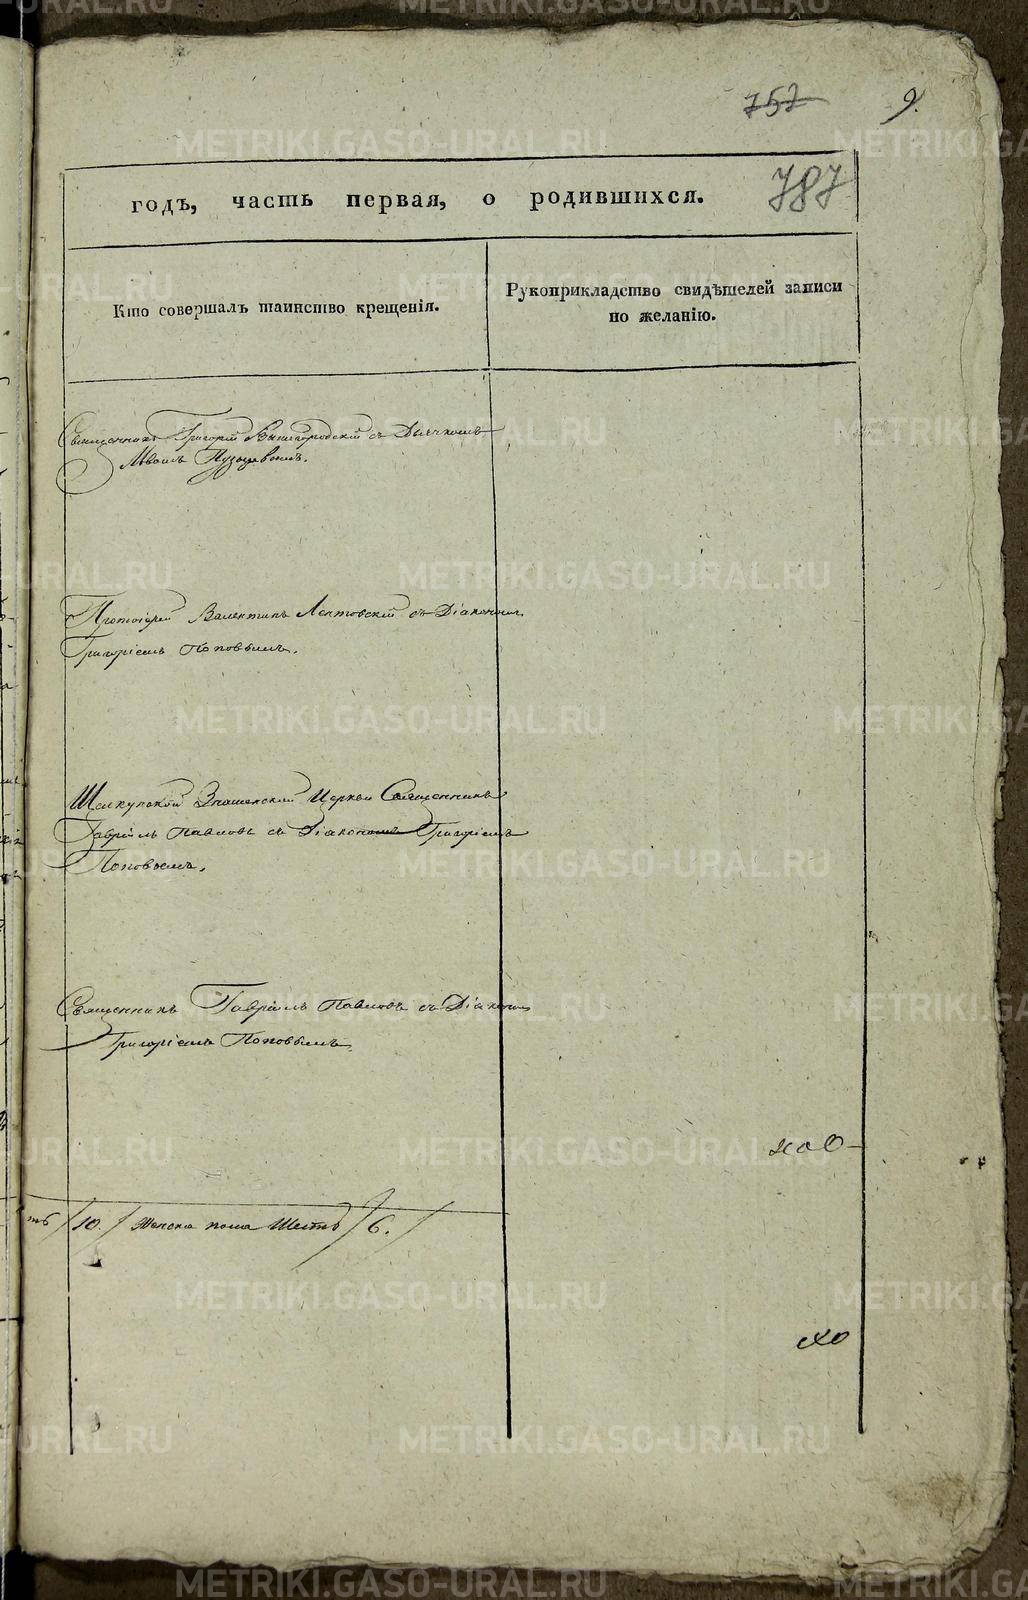 757
9.
годъ, часть первая, о родившихся.
787
Кто совершалъ таинство крещенія.
Рукоприкладство свидѣтелей записи
по желанію.
Священникъ Григорій Вышгородскій съ Дьячкомъ
Протоіерей Валентинъ Лектовскій съ Діакономъ
Григоріемъ Поповымъ.
Церкви Священникъ
Гавріилъ Павловъ съ Діакономъ Григоріемъ
Поповымъ.
Священникъ Гавріилъ Павловъ съ Діакономъ
Григоріемъ Поповымъ
/10./ Женска пола Шесть /6./
METRIKI.GASO-URAL.RU